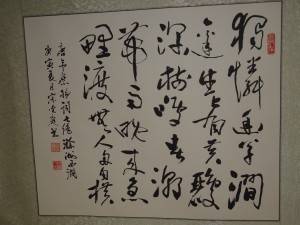 獨憐幽草澗
邊生上有黃鸝
深樹鳴春潮
帶雨晚來急
野渡無人舟自橫
唐韋應物詞七絕滁州西澗
庚寅夏月